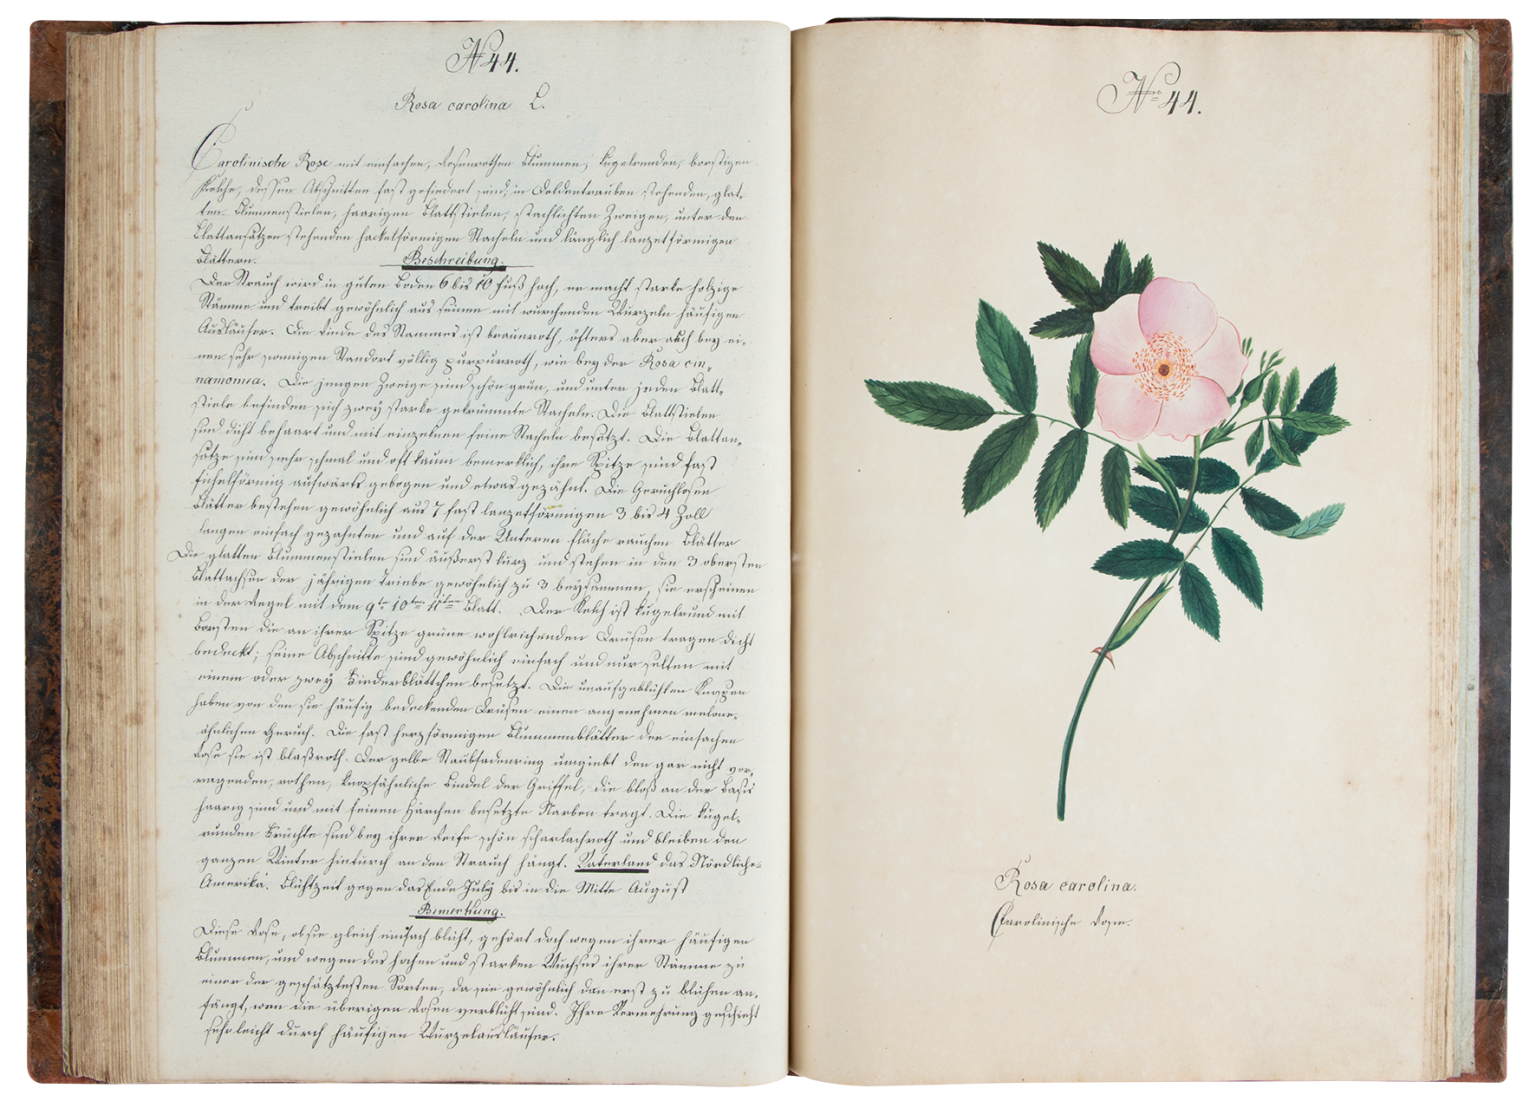 № 44.
Rosa carolina L.
Carolinische Rose mit einfachen, rosenrothen Blummen, kugelrunden, borstigen
Kelche, dessen Abschnitten fast gefiedert sind; in Doldentrauben stehenden, glat-
ten Blummenstielen, haarigen Blattstielen, stachlichten Zweigen, unter den
Blattansätzen stehenden hackelförmigen Stacheln und länglich lanzetförmigen
Blättern.
Beschreibung.
Der Strauch wird in guten Boden 6 bis 10 Fuß hoch, er macht starke holzige
Stämme und treibt gewöhnlich aus seinen mit wurchenden Wurzeln häufigen
Ausläufer. Die Rinde des Stammes ist braunroth, öfters aber auch bey ei-
nen sehr sonnigen Standort völlig purpurroth, wie bey der Rosa cin-
namomea. Die jungen Zweige sind schön grün, und unter jeden Blatt-
stiele befinden sich zwey starke gekrümmte Stacheln. Die Blattstielen
sind dicht behaart und mit einzelnen feine Stacheln besetzt. Die Blattan-
sätze sind sehr schmal und oft kaum bemerklich, ihre Spitze sind fast
sichelförmig aufwärts gebogen und etwas gezähnt. Die Geruchlosen
Blätter bestehen gewöhnlich aus 7 fast lanzetförmigen 3 bis 4 Zoll
langen einfach gezahnten und auf der Unteren fläche rauchen Blätter
Die glatten Blummenstielen sind äußerst kurz und stehen in den 3 obersten
Blattachsen der jährigen Triebe gewöhnlich zu 3 beysammen, sie erscheinen
in der Regel mit dem 9ten 10ten 11ten Blatt. Der Kelch ist kugelrund mit
Borsten die an ihrer Spitze grüne wohlrichenden Drüsen tragen dicht
bedeckt; seine Abschnitte sind gewöhnlich einfach und nur selten mit
einem oder zwey Fiederblättchen besetzt. Die unaufgeblühten Knospen
haben von den sie häufig bedeckenden Drüsen einen angenehmen melone-
ähnlichen Geruch. Die fast herzförmigen Blummenblätter der einfachen
Rose sie ist blaßroth. Der gelbe Staubfadenring umgiebt den gar nicht vor-
ragenden, rothen, knopfähnliche Bündel der Griffel, die bloß an der Basis
haarig sind und mit feinen Härchen besetzte Narben tragt. Die kugel-
runden Früchte sind bey ihrer Reife schön scharlachroth und bleiben den
ganzen Winter hindurch an den Strauch hängt. Vaterland das Nördliche
Amerika. Blühtzeit gegen das Ende July bis in die Mitte August
Bemerkung.
Diese Rose, ob sie gleich einfach blüht, gehört doch wegen ihrer häufigen
Blummen, und wegen des hohen und starken Wuchses ihrer Stämme zu
einer der geschätztesten Sorten, da sie gewöhnlich dan erst zu blühen an-
fängt, wen die überigen Rosen verblüht sind. Ihre Vermehrung geschieht
sehr leicht durch häufigen Wurzelausläufer.
№ 44.
Rosa carolina.
Carolinische Rose.